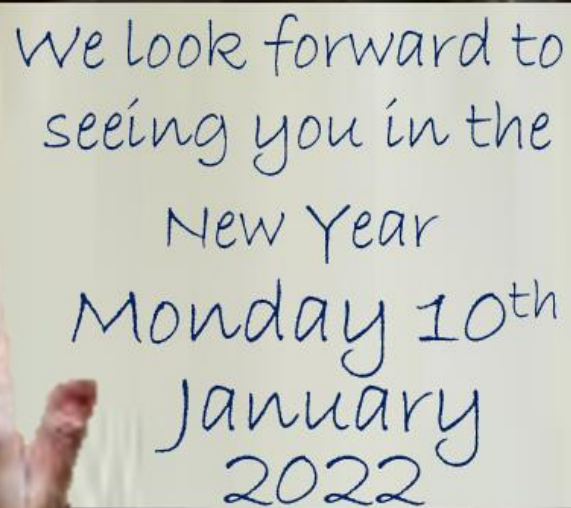 We look forward to
seeing you in the
New Year
Monday 10th
January
2022